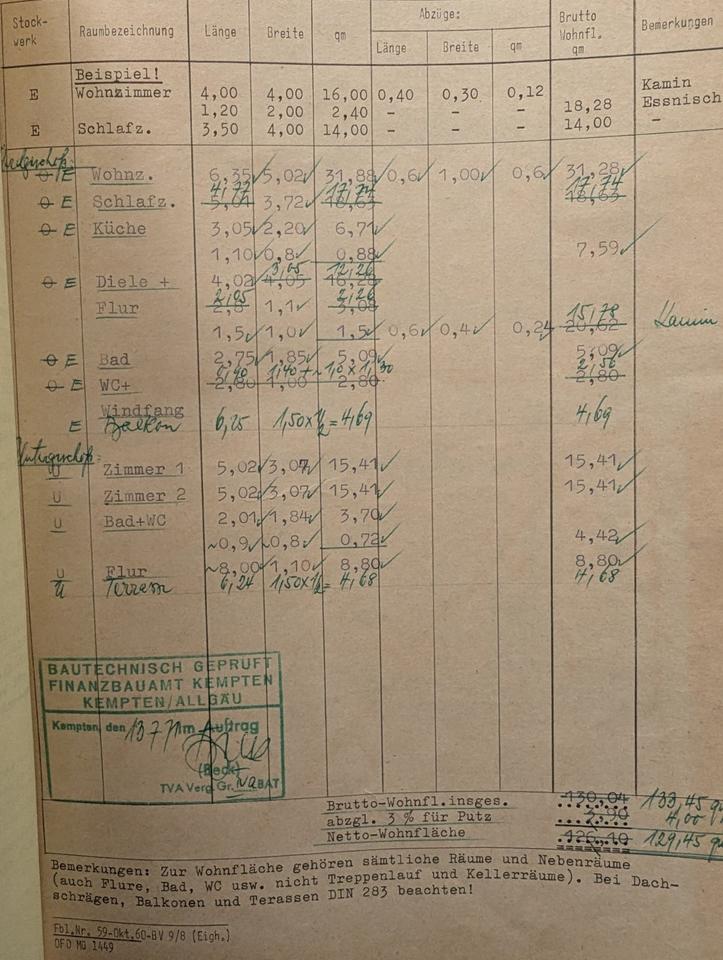 Stock-werk Raumbezeichnung Länge Breite qm Abzüge: Länge Breite qm Brutto Wohnfl. qm Bemerkungen
Beispiel!
E Wohnzimmer 4,00 4,00 16,00 0,40 0,30 0,12 Kamin
1,20 2,00 2,40 - - - 18,28 Essnisch
E Schlafz. 3,50 4,00 14,00 - - - 14,00 -
O E Wohnz. 6,35 5,02 31,88 0,6 1,00 0,6 31,28
4,77 17,74 17,74
O E Schlafz. 5,01 3,72 18,63 18,63
O E Küche 3,05 2,20 6,71
1,10 0,8 0,88 7,59
3,05 12,26
O E Diele + 4,02 4,05 16,28
2,05 2,26 15,78
Flur 2,8 1,1 3,08 Kamin
1,5 1,0 1,5 0,6 0,4 0,24 20,62
O E Bad 2,75 1,85 5,09 5,09
1,40 1,40 + 1,0 x 1,30 2,56
O E WC+ 2,80 1,00 2,80 2,80
Windfang
E Balkon 6,25 1,50x½ = 4,69 4,69
Untergeschoß:
U Zimmer 1 5,02 3,07 15,41 15,41
U Zimmer 2 5,02 3,07 15,41 15,41
U Bad+WC 2,01 1,84 3,70
~0,9 ~0,8 0,72 4,42
U Flur ~8,00 1,10 8,80 8,80
U Terrasse 6,24 1,50x½ = 4,68 4,68
BAUTECHNISCH GEPRÜFT
FINANZBAUAMT KEMPTEN
KEMPTEN/ALLGÄU
Kempten, den Im Auftrag
(Beck)
TVA Verg. Gr. IVa BAT
Brutto-Wohnfl.insges. 130,04 133,45
abzgl. 3 % für Putz 3,90 4,00
Netto-Wohnfläche 126,10 129,45
Bemerkungen: Zur Wohnfläche gehören sämtliche Räume und Nebenräume
(auch Flure, Bad, WC usw. nicht Treppenlauf und Kellerräume). Bei Dach-
schrägen, Balkonen und Terassen DIN 283 beachten!
Fbl.Nr. 59-Okt.60-BV 9/8 (Eigh.)
OFD Mü 1449